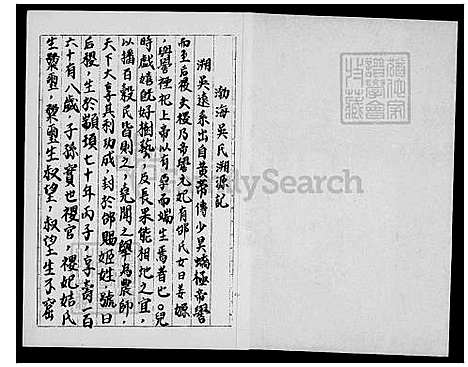 渤海吳氏溯源記
溯吳遠系出自黃帝傳少昊蟜極帝嚳
而至后稷后稷乃帝嚳元妃有邰氏女曰姜嫄
與嚳禋祀上帝以有孕而端生焉昔也兒
時戲嬉既好樹藝及長果能相地之宜
以播百穀民皆則之堯聞之舉為農師
天下大享其利功成封於邰賜姬姓號曰
后稷生於顓頊七十年丙子享壽一百
六十有八歲子孫實世稷官稷妃姞氏
生漦璽漦璽生叔望叔望生不窋
MySearch